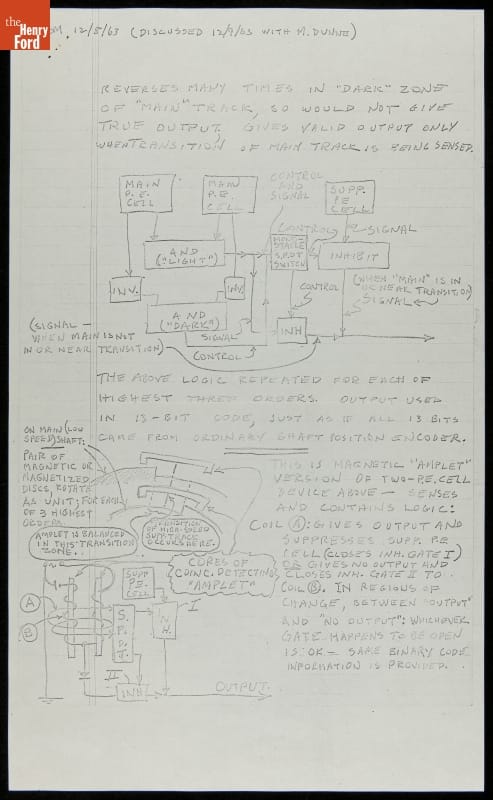 the
Henry
Ford
12/5/63 (DISCUSSED 12/9/63 WITH M. DUNNE)
REVERSES MANY TIMES IN "DARK" ZONE
OF "MAIN" TRACK, SO WOULD NOT GIVE
TRUE OUTPUT. GIVES VALID OUTPUT ONLY
WHEN TRANSITION OF MAIN TRACK IS BEING SENSED.
MAIN
P.E.
CELL
MAIN
P.E.
CELL
CONTROL
AND
SIGNAL
SUPP.
PE
CELL
CONTROL
SIGNAL
AND
("LIGHT")
MONO-
STABLE
S.P.D.T.
SWITCH
INHIBIT
INV.
INV.
CONTROL
(WHEN "MAIN" IS IN
OR NEAR TRANSITION)
SIGNAL
AND
("DARK")
INH
(SIGNAL -
WHEN MAIN IS NOT
IN OR NEAR TRANSITION)
SIGNAL
CONTROL
THE ABOVE LOGIC REPEATED FOR EACH OF
HIGHEST THREE ORDERS. OUTPUT USED
IN 13-BIT CODE, JUST AS IF ALL 13 BITS
CAME FROM ORDINARY SHAFT POSITION ENCODER.
ON MAIN (LOW
SPEED) SHAFT:
PAIR OF
MAGNETIC OR
MAGNETIZED
DISCS, ROTATE
AS UNIT; FOR EACH
OF 3 HIGHEST
ORDERS.
AMPLET IS BALANCED
IN THIS TRANSITION
ZONE...
TRANSITION
OF HIGH-SPEED
SUPP. TRACE
OCCURS HERE.
THIS IS MAGNETIC "AMPLET"
VERSION OF TWO-P.E. CELL
DEVICE ABOVE - SENSES
AND CONTAINS LOGIC:
COIL A: GIVES OUTPUT AND
SUPPRESSES SUPP. PE
CELL (CLOSES INH. GATE I)
OR GIVES NO OUTPUT AND
CLOSES INH. GATE II TO
COIL B. IN REGIONS OF
CHANGE, BETWEEN "OUTPUT"
AND "NO OUTPUT": WHICHEVER
GATE HAPPENS TO BE OPEN
IS OK - SAME BINARY CODE
INFORMATION IS PROVIDED.
CORES OF
COINC. DETECTING
"AMPLET"
SUPP
P.E.
CELL
I
A
B
S.
P.
D.
T.
INH.
II
INH
OUTPUT